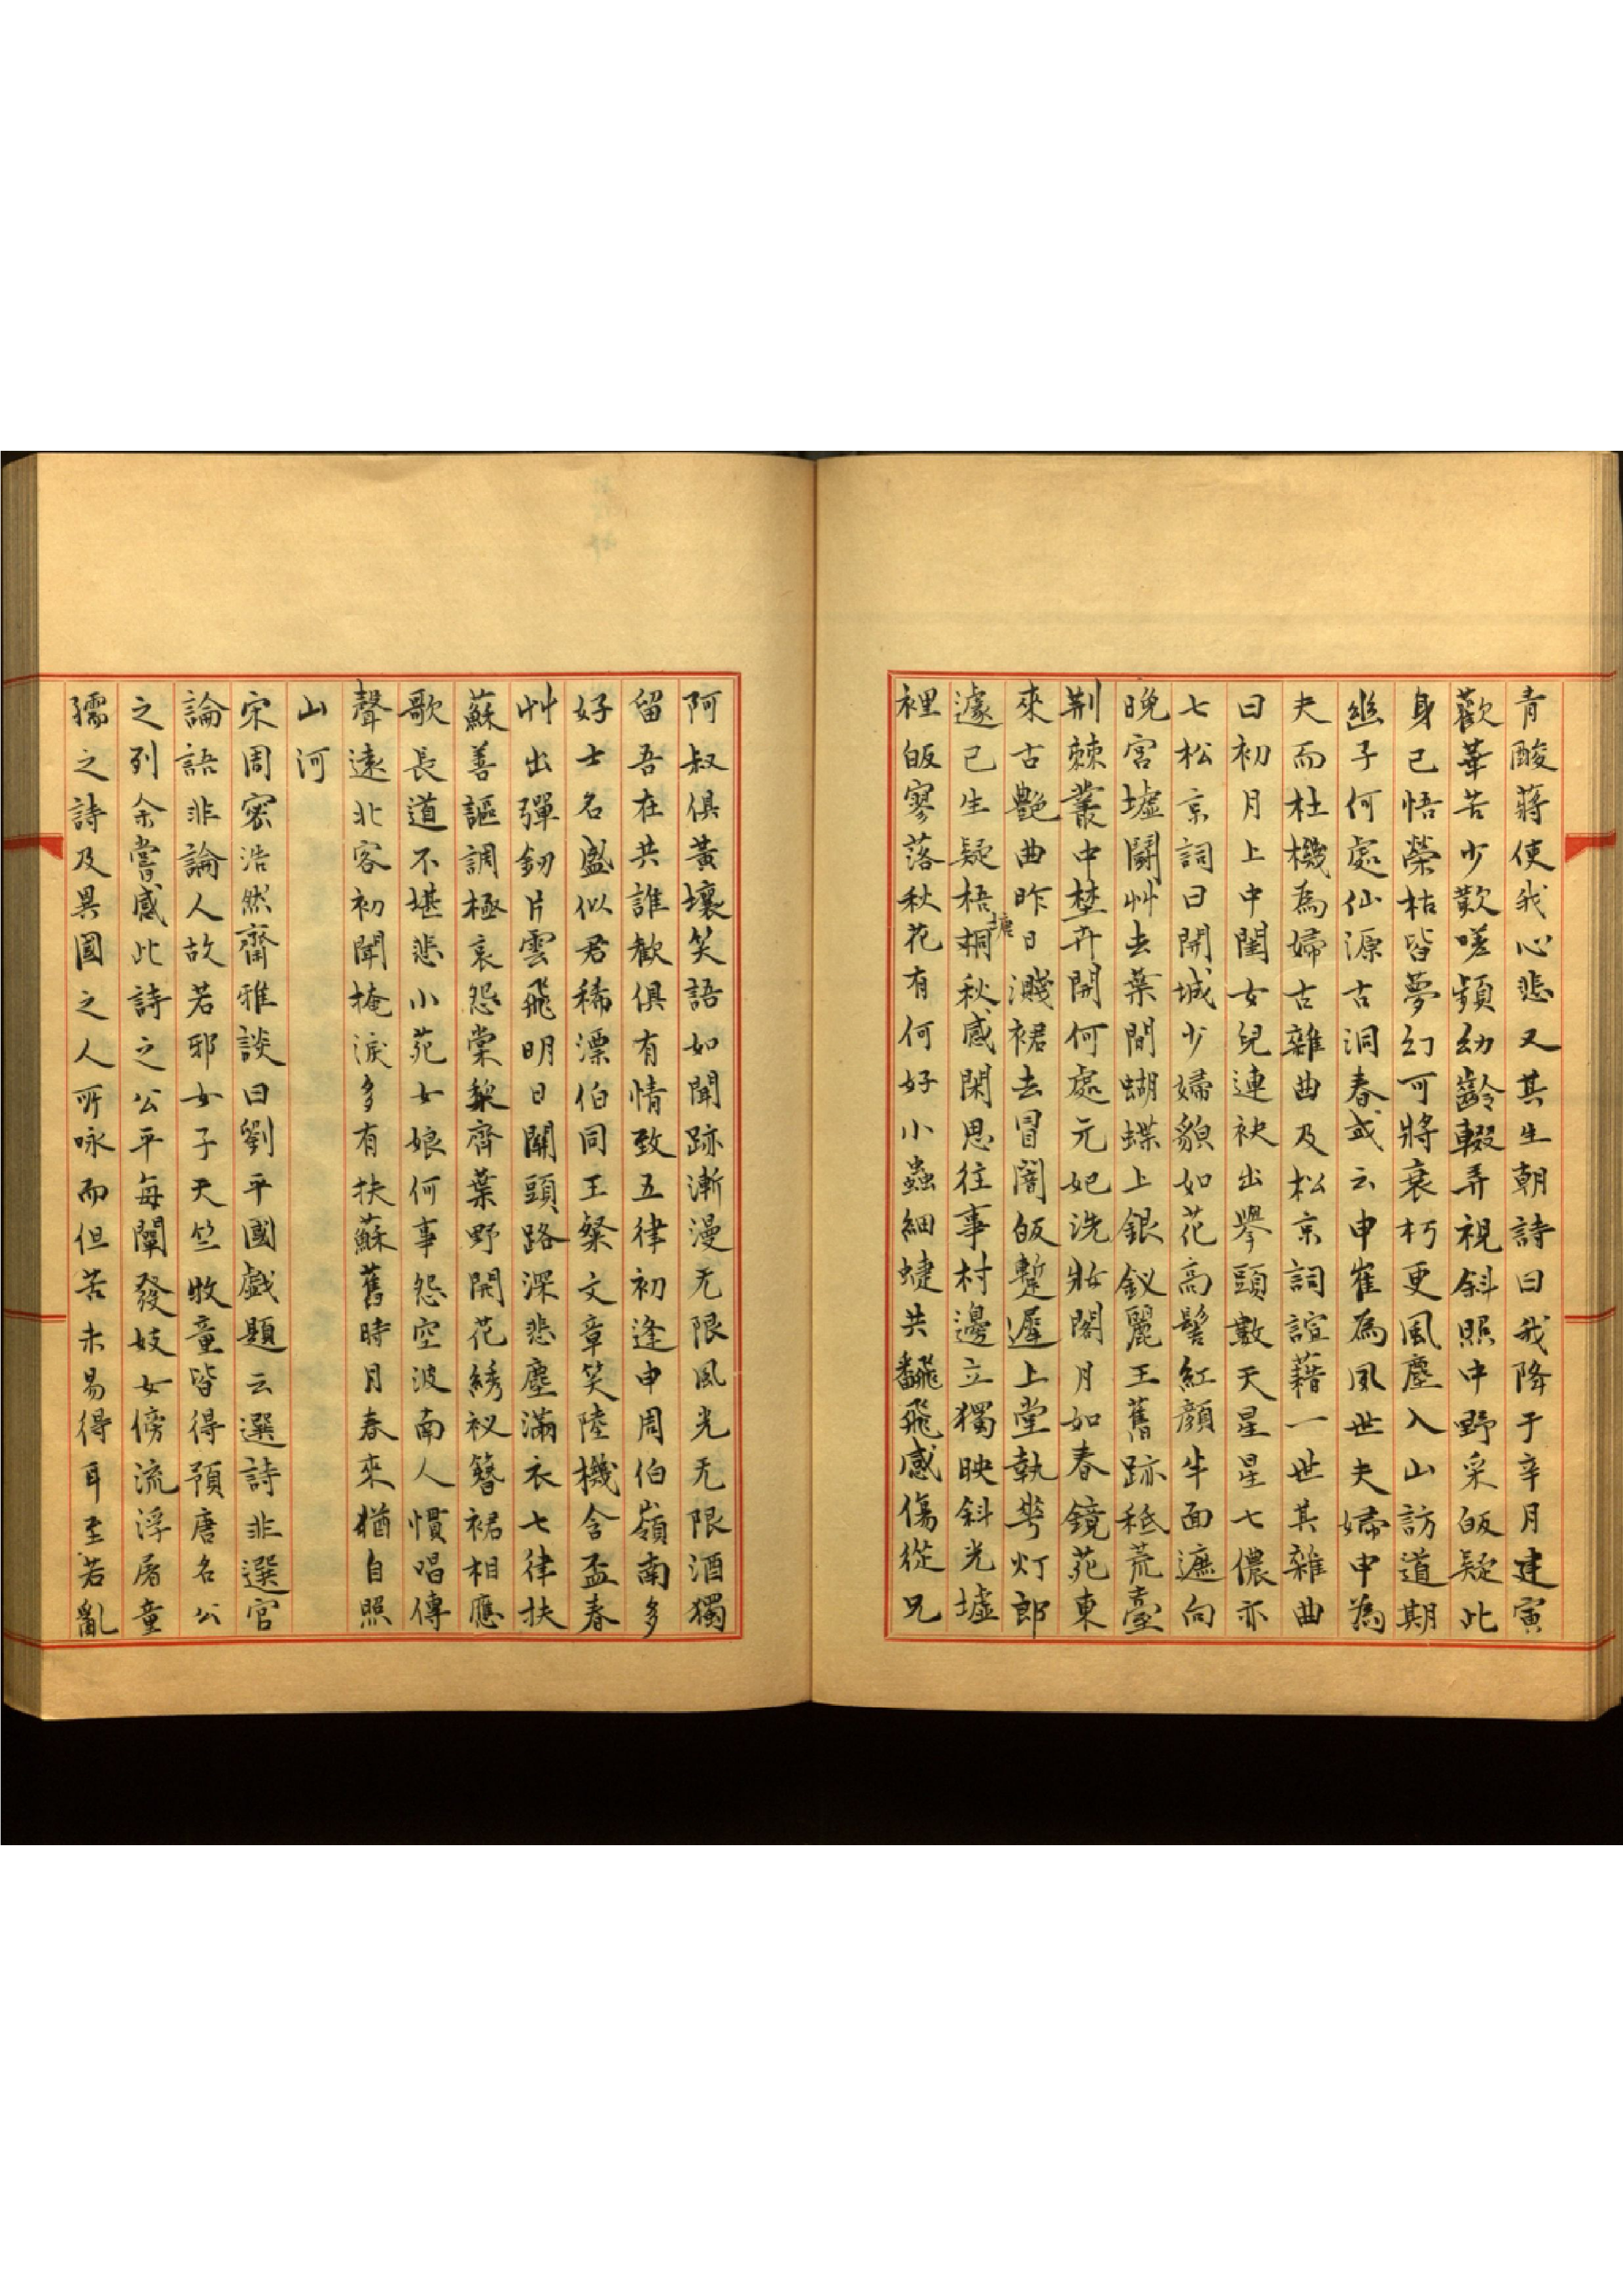 青酸蔣使我心悲又其生朝詩曰我降于辛月建寅
歡華苦少歎嗟頻幼齡輟弄視斜照中野采皈疑此
身已悟榮枯皆夢幻可將衰朽更風塵入山訪道期
幽子何處仙源古洞春或云申崔為夙世夫婦申為
夫而杜機為婦古雜曲及松京詞諠藉一世其雜曲
曰初月上中閨女兒連袂出擧頭數天星星七儂亦
七松京詞曰開城少婦貌如花高髻紅顔半面遮向
晚宮墟鬪艸去葉間蝴蝶上銀釵麗王舊跡秪荒臺
荆棘叢中埜卉開何處元妃洗妝閣月如春鏡苑東
來古艶曲昨日濺裙去冒闇皈蹔遲上堂執華灯郎
遽已生疑梧桐秋感閑思往事村邊立獨映斜光墟
塘
裡皈寥落秋花有何好小蟲細蜨共飜飛感傷從兄
阿叔俱黃壤笑語如聞跡漸漫无限風光无限酒獨
留吾在共誰歡俱有情致五律初逢申周伯嶺南多
好士名盛似君稀漂伯同王粲文章笑陸機含盃春
艸出彈釰片雲飛明日關頭路深悲塵滿衣七律扶
蘇善謳調極哀怨棠棃齊葉野開花綉衩簪裾相應
歌長道不堪悲小苑女娘何事怨空波南人慣唱傳
聲遠北客初聞掩淚多有扶蘇舊時月春來猶自照
山河
宋周密浩然齋雅談曰劉平國戲題云選詩非選官
論語非論人故若邪女子天竺牧童皆得預唐名公
之列余嘗感此詩之公平每闡發妓女傍流浮屠童
孺之詩及異國之人所咏而但苦未易得耳至若亂